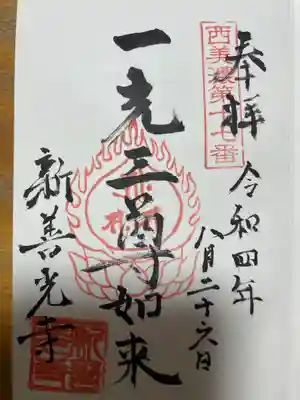 奉拝
西美濃第十一番
令和四年
八月二十六日
一光三尊如来
新善光寺